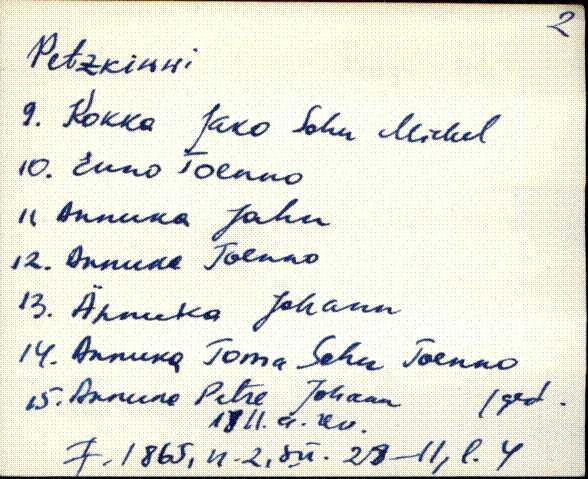 2
Petzkinni
9. Kokka Jako Sohn Michel
10. Enno Toenno
11 Annuka Jahn
12. Annuka Toenno
13. Annuka Johann
14. Annuka Toma Sohn Toenno
15. Annuka Petre Johann
1811. a. rev.
F. 1865, n. 2, 28-11, l. 4